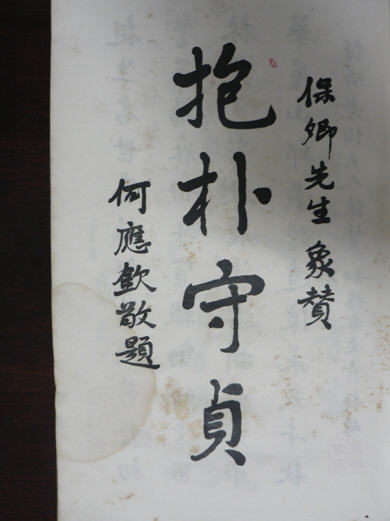 保卿先生象贊
抱朴守貞
何應欽敬題